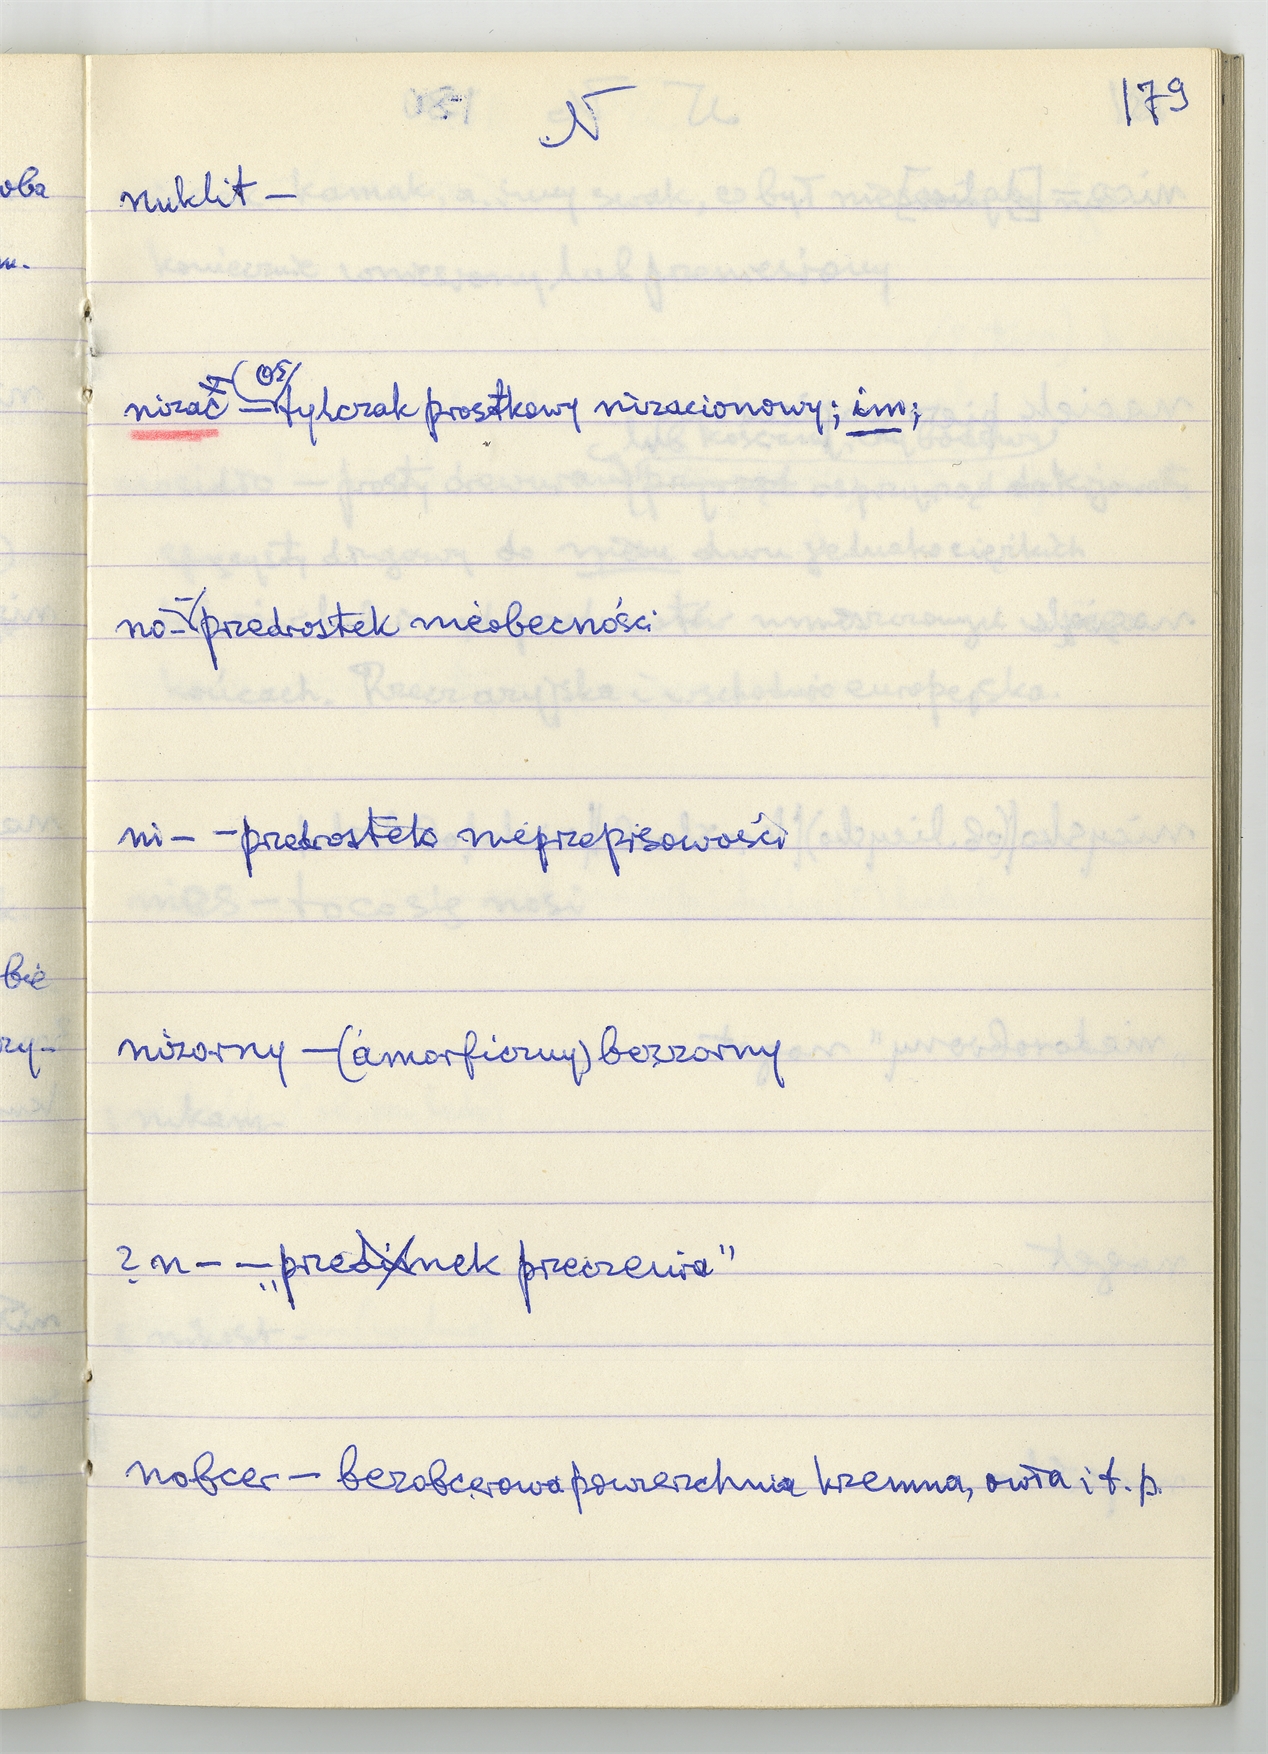 N
179
nuklit —
nizać — (oś) tylczak prostkowy nizacionowy; im;
no- — przedrostek nieobecności
ni- — przedrostek nieprzepisowości
nizarny — (amorficzny) bezzarny
? n- — „przedimek przeczenia"
nobcer — bezobcerowa powierzchnia krzemna, owta i t. p.